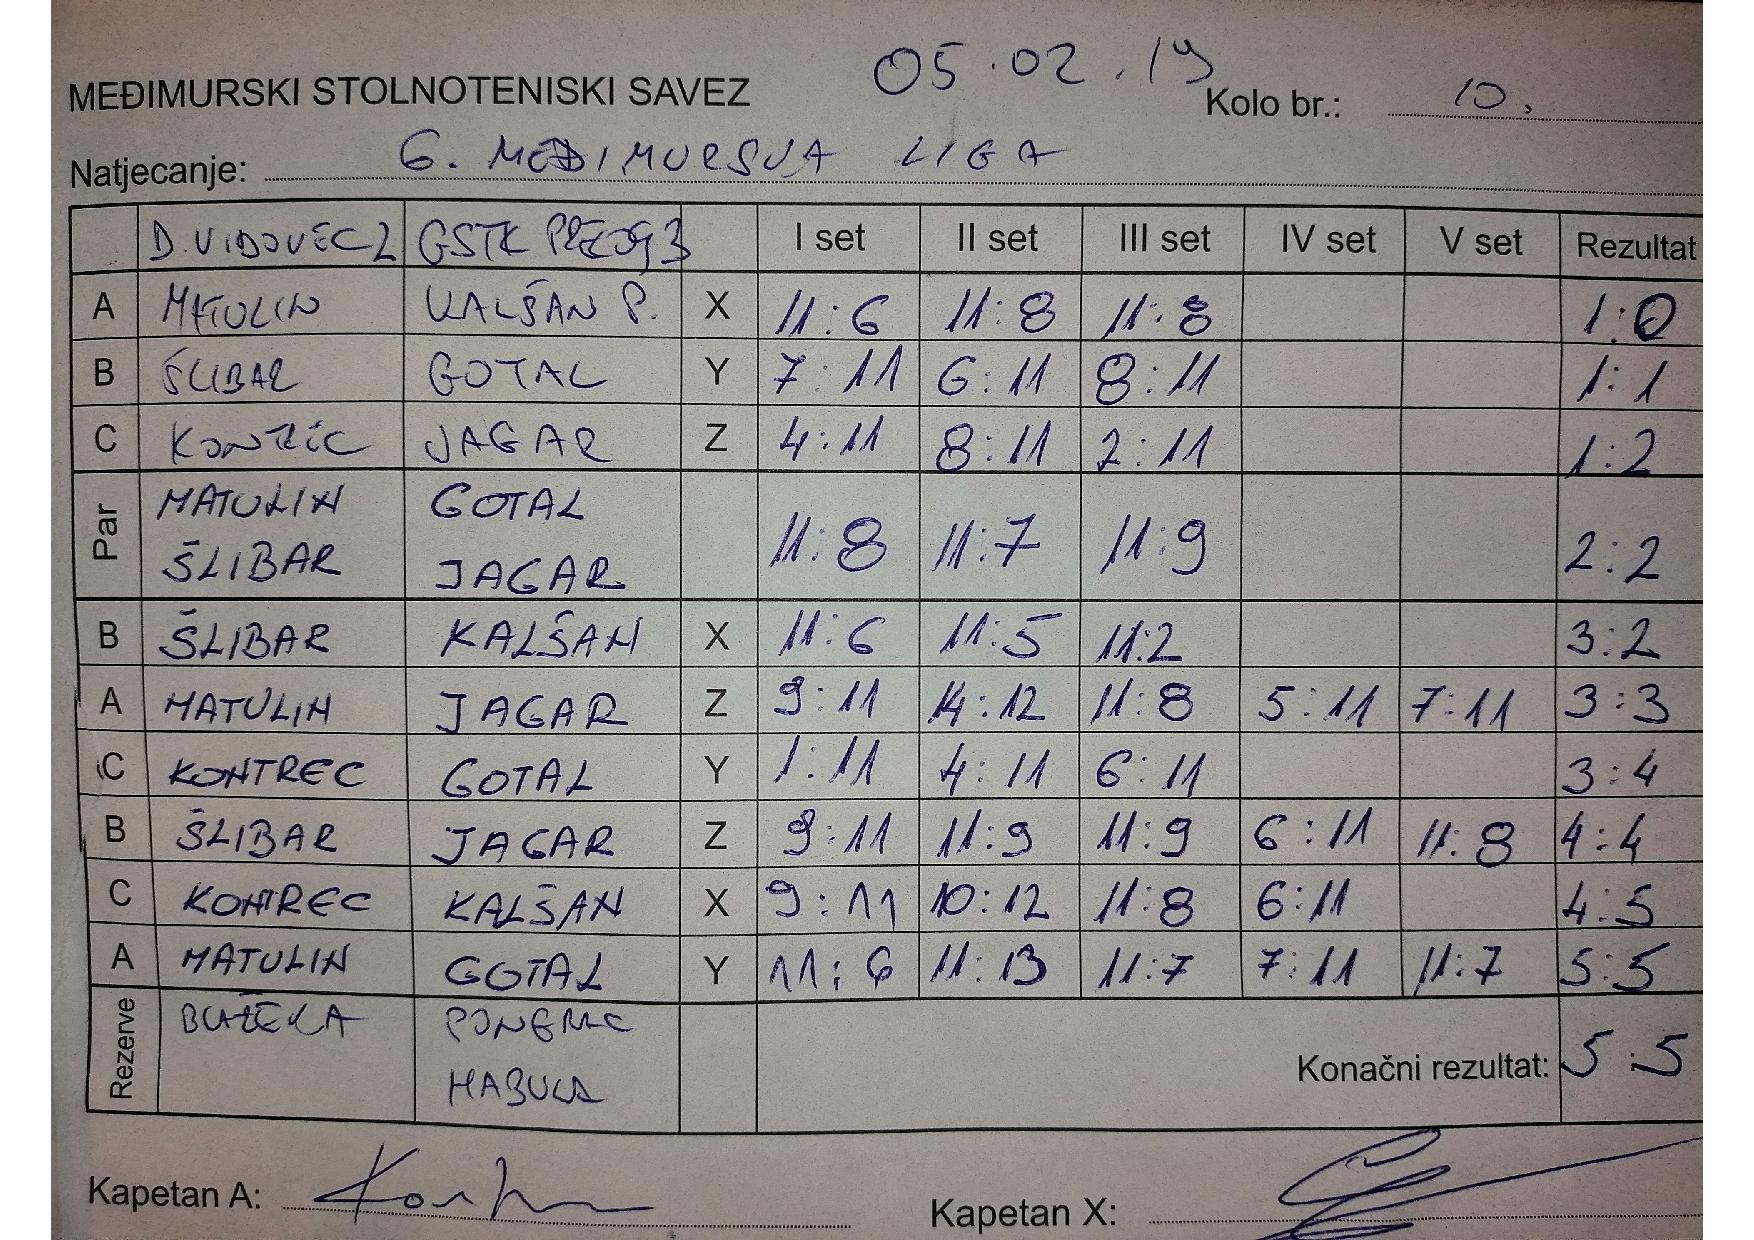 05.02.19
MEĐIMURSKI STOLNOTENISKI SAVEZ
Kolo br.: 10.
Natjecanje: 6. MEĐIMURSKA LIGA
D. VIDOVEC 2 GSTK PRELOG 3 I set II set III set IV set V set Rezultat
A MATULIN KALŠAN P. X 11:6 11:8 11:8 1:0
B ŠLIBAR GOTAL Y 7:11 6:11 8:11 1:1
C KONTREC JAGAR Z 4:11 8:11 2:11 1:2
Par MATULIN GOTAL
ŠLIBAR JAGAR 11:8 11:7 11:9 2:2
B ŠLIBAR KALŠAN X 11:6 11:5 11:2 3:2
A MATULIN JAGAR Z 9:11 14:12 11:8 5:11 7:11 3:3
C KONTREC GOTAL Y 1:11 4:11 6:11 3:4
B ŠLIBAR JAGAR Z 9:11 11:9 11:9 6:11 11:8 4:4
C KONTREC KALŠAN X 9:11 10:12 11:8 6:11 4:5
A MATULIN GOTAL Y 11:6 11:13 11:7 7:11 11:7 5:5
Rezerve
Konačni rezultat: 5:5
Kapetan A:
Kapetan X: